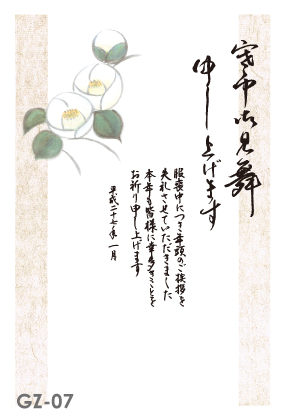 寒中御見舞
申し上げます
服喪中につき年頭のご挨拶を
失礼させていただきました
本年も皆様に幸多きことを
お祈り申し上げます
平成二十七年一月
GZ-07